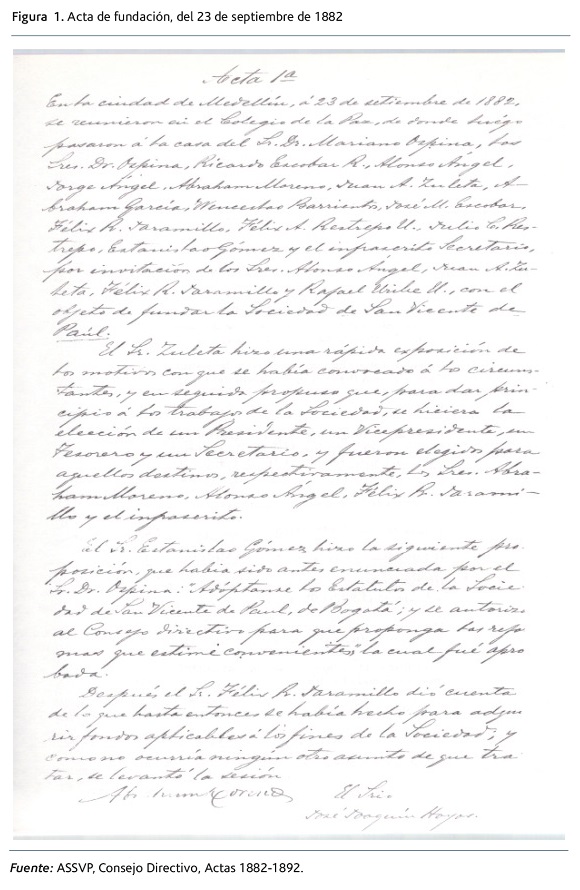 Figura 1. Acta de fundación, del 23 de septiembre de 1882
Acta 1ª
En la ciudad de Medellín, á 23 de setiembre de 1882,
se reunieron en el Colegio de la Paz, de donde luego
pasaron á la casa del Sr. Dr. Mariano Ospina, los
Sres. Dr. Ospina, Ricardo Escobar R., Alonso Ángel,
Jorge Ángel, Abraham Moreno, Juan A. Zuleta, A-
braham García, Wenceslao Barrientos, José M. Escobar,
Félix R. Jaramillo, Félix A. Restrepo U., Julio C. Res-
trepo, Estanislao Gómez y el infrascrito Secretario,
por invitación de los Sres. Alonso Ángel, Juan A. Zu-
leta, Félix R. Jaramillo y Rafael Uribe U., con el
objeto de fundar la Sociedad de San Vicente de
Paúl.
El Sr. Zuleta hizo una rápida exposición de
los motivos con que se había convocado á los circuns-
tantes, y en seguida propuso que, para dar prin-
cipio á los trabajos de la Sociedad, se hiciera la
elección de un Presidente, un Vicepresidente, un
Tesorero y un Secretario, y fueron elegidos para
aquellos destinos, respectivamente, los Sres. Abra-
ham Moreno, Alonso Ángel, Félix R. Jarami-
llo y el infrascrito.
El Sr. Estanislao Gómez hizo la siguiente pro
posición, que había sido antes enunciada por el
Sr. Dr. Ospina: "Adóptanse los Estatutos de la Socie
dad de San Vicente de Paul, de Bogotá; y se autoriza
al Consejo directivo para que proponga las refor
mas que estime convenientes", la cual fué apro
bada.
Después el Sr. Félix R. Jaramillo dió cuenta
de lo que hasta entonces se había hecho para adqui
rir fondos aplicables á los fines de la Sociedad; y
como no ocurría ningun otro asunto de que tra
tar, se levantó la sesión
Abraham Moreno El Srio.
José Joaquín Hoyos.
Fuente: ASSVP, Consejo Directivo, Actas 1882-1892.